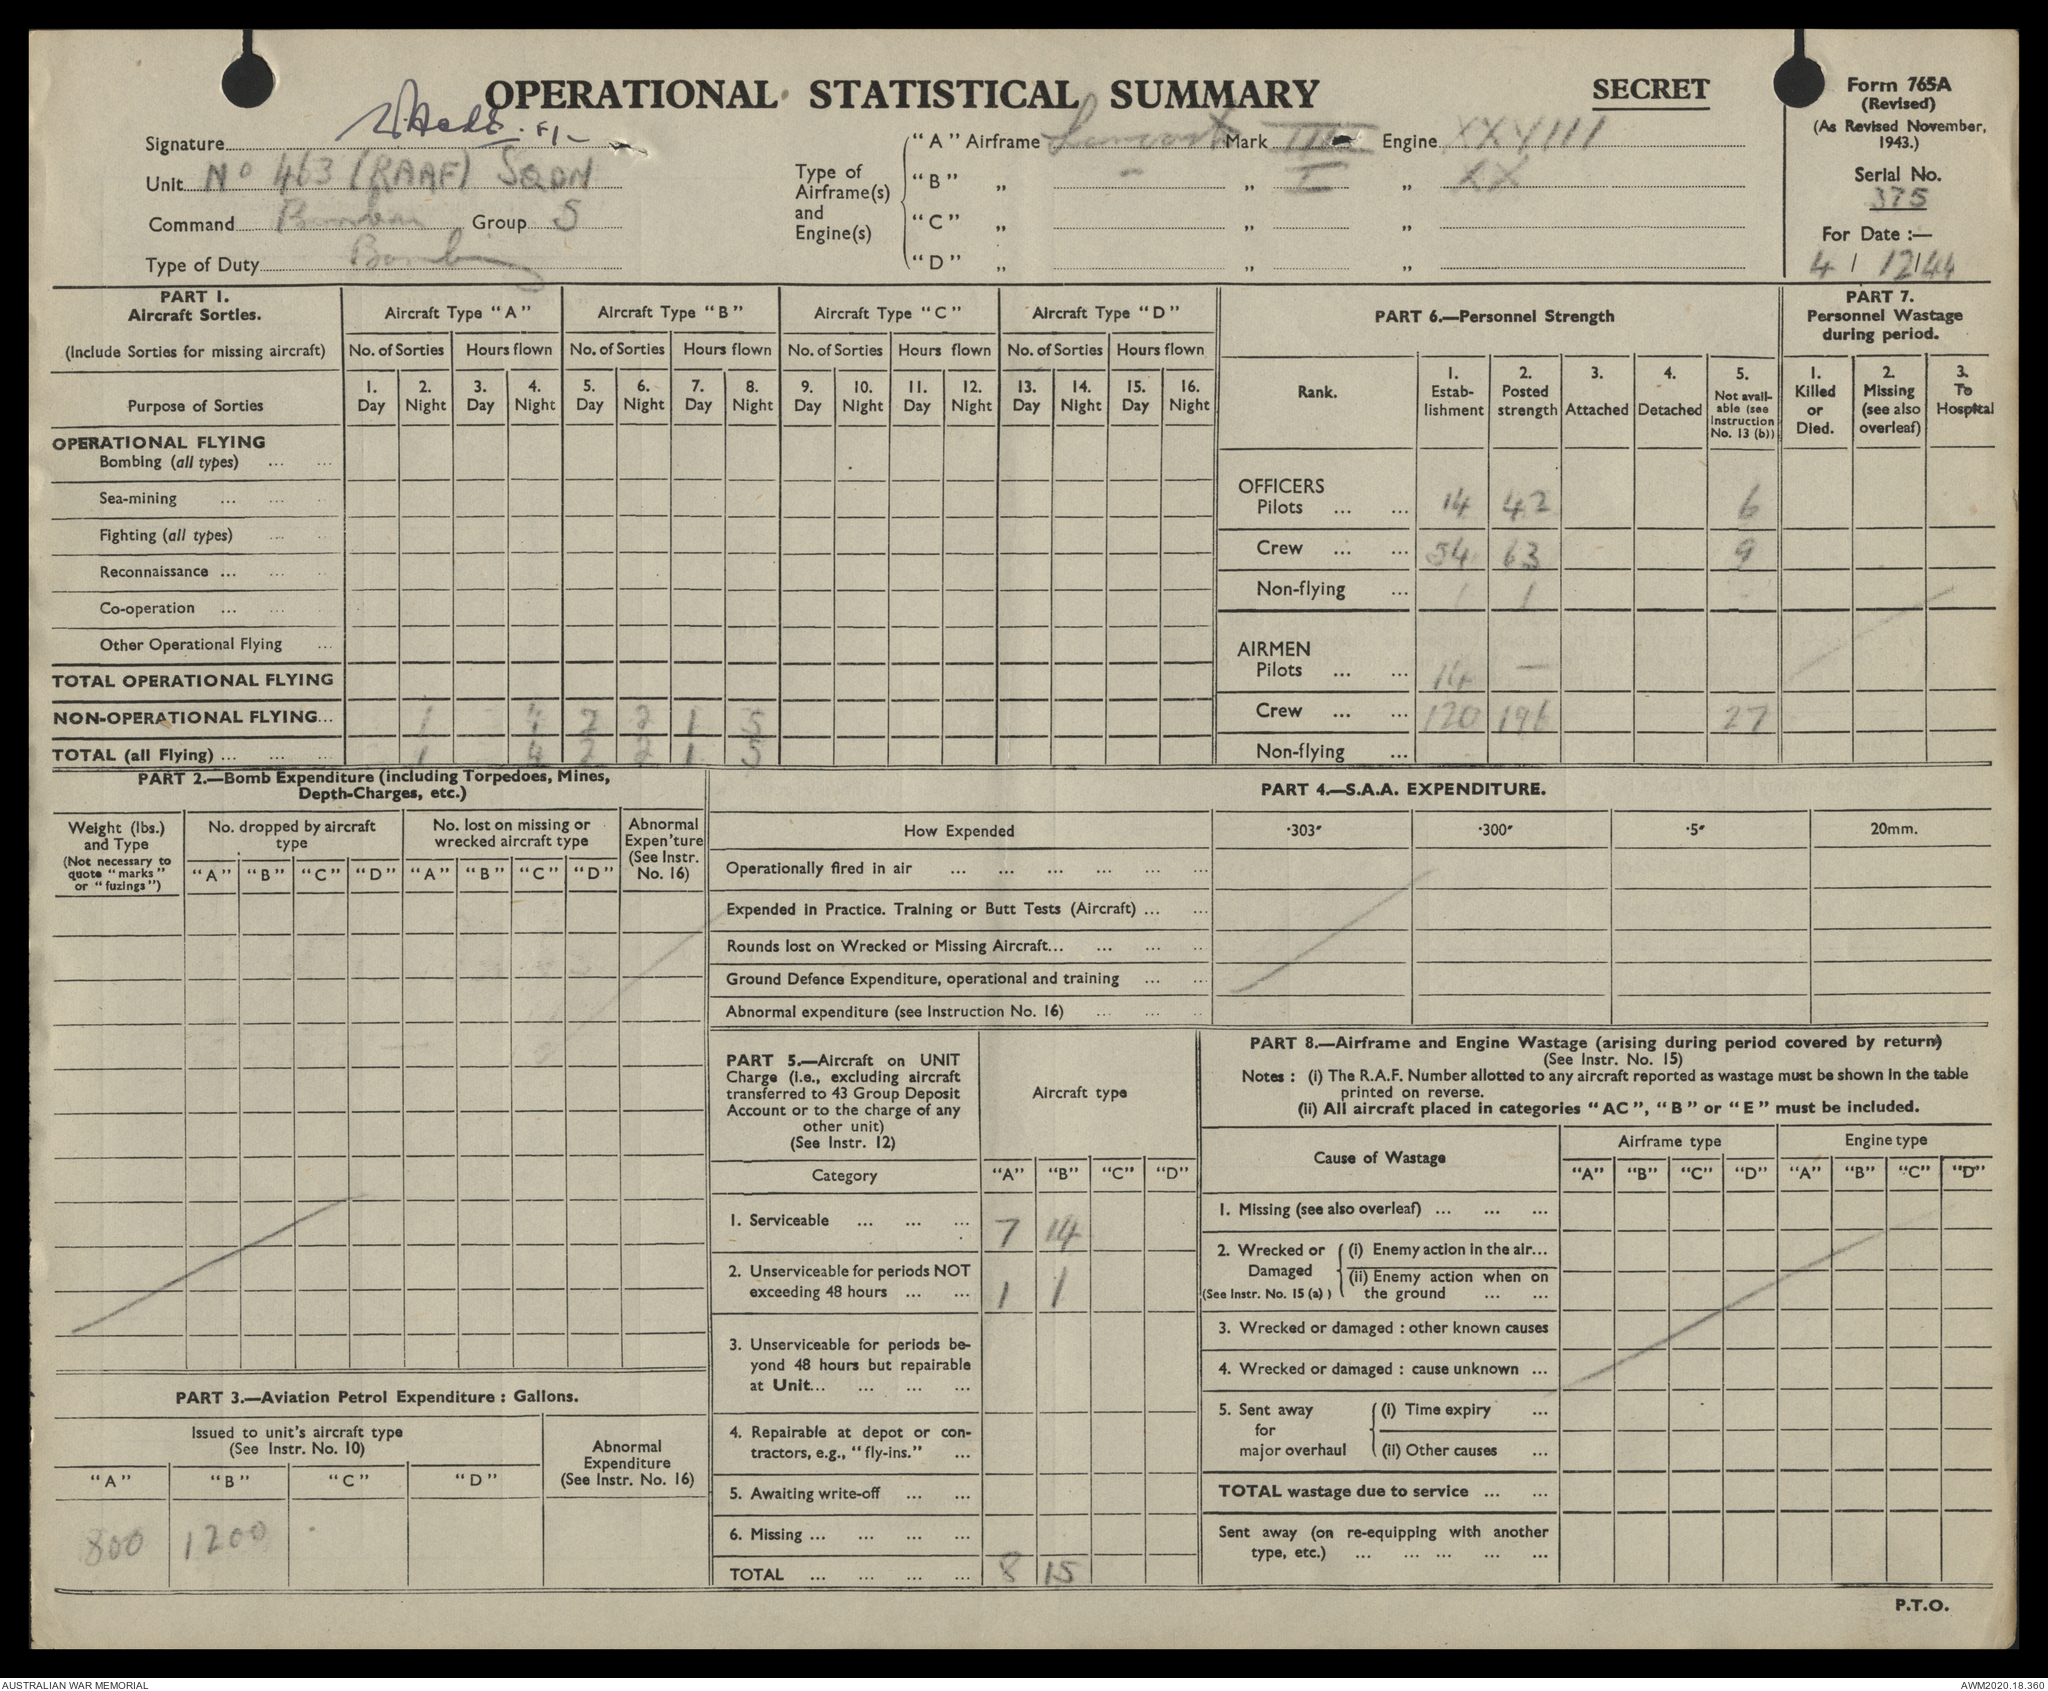 OPERATIONAL STATISTICAL SUMMARY
SECRET
Form 765A
(Revised)
(As Revised November,
1943.)
Serial No.
375
For Date :—
4 / 12 / 44
Signature
Unit No 463 (RAAF) SQDN
Command Bomber Group 5
Type of Duty Bombing
Type of
Airframe(s)
and
Engine(s)
"A" Airframe Lancaster Mark III Engine XXVIII
"B" „ - „ I „ XX
"C" „ „ „
"D" „ „ „
PART I.
Aircraft Sorties.
(Include Sorties for missing aircraft)
Aircraft Type "A" Aircraft Type "B" Aircraft Type "C" Aircraft Type "D"
No. of Sorties Hours flown No. of Sorties Hours flown No. of Sorties Hours flown No. of Sorties Hours flown
Purpose of Sorties
1. Day 2. Night 3. Day 4. Night 5. Day 6. Night 7. Day 8. Night 9. Day 10. Night 11. Day 12. Night 13. Day 14. Night 15. Day 16. Night
OPERATIONAL FLYING
Bombing (all types) ... ...
Sea-mining ... ... ...
Fighting (all types) ... ...
Reconnaissance ... ... ...
Co-operation ... ... ...
Other Operational Flying ...
TOTAL OPERATIONAL FLYING
NON-OPERATIONAL FLYING... 1 4 2 2 1 5
TOTAL (all Flying) ... ... ... 1 4 2 2 1 5
PART 6.—Personnel Strength
Rank.
1. Estab-lishment
2. Posted strength
3. Attached
4. Detached
5. Not avail-able (see Instruction No. 13 (b))
OFFICERS
Pilots ... ... 14 42 6
Crew ... ... 54 63 9
Non-flying ... 1 1
AIRMEN
Pilots ... ... 14 —
Crew ... ... 120 196 27
Non-flying ...
PART 7.
Personnel Wastage
during period.
1. Killed or Died.
2. Missing (see also overleaf)
3. To Hospital
PART 2.—Bomb Expenditure (including Torpedoes, Mines,
Depth-Charges, etc.)
Weight (lbs.)
and Type
(Not necessary to
quote "marks"
or "fuzings")
No. dropped by aircraft
type
No. lost on missing or
wrecked aircraft type
Abnormal
Expen'ture
(See Instr.
No. 16)
"A" "B" "C" "D" "A" "B" "C" "D"
PART 3.—Aviation Petrol Expenditure : Gallons.
Issued to unit's aircraft type
(See Instr. No. 10)
Abnormal
Expenditure
(See Instr. No. 16)
"A" "B" "C" "D"
800 1200
PART 4.—S.A.A. EXPENDITURE.
How Expended ·303″ ·300″ ·5″ 20mm.
Operationally fired in air ... ... ... ... ... ...
Expended in Practice. Training or Butt Tests (Aircraft) ... ...
Rounds lost on Wrecked or Missing Aircraft... ... ... ...
Ground Defence Expenditure, operational and training ... ...
Abnormal expenditure (see Instruction No. 16) ... ... ...
PART 5.—Aircraft on UNIT
Charge (i.e., excluding aircraft
transferred to 43 Group Deposit
Account or to the charge of any
other unit)
(See Instr. 12)
Aircraft type
Category "A" "B" "C" "D"
1. Serviceable ... ... ... 7 14
2. Unserviceable for periods NOT
exceeding 48 hours ... ... 1 1
3. Unserviceable for periods be-
yond 48 hours but repairable
at Unit... ... ... ...
4. Repairable at depot or con-
tractors, e.g., "fly-ins." ...
5. Awaiting write-off ... ...
6. Missing ... ... ... ...
TOTAL ... ... ... ... 8 15
PART 8.—Airframe and Engine Wastage (arising during period covered by return)
(See Instr. No. 15)
Notes : (i) The R.A.F. Number allotted to any aircraft reported as wastage must be shown in the table
printed on reverse.
(ii) All aircraft placed in categories "AC", "B" or "E" must be included.
Cause of Wastage
Airframe type Engine type
"A" "B" "C" "D" "A" "B" "C" "D"
1. Missing (see also overleaf) ... ... ...
2. Wrecked or
Damaged
(See Instr. No. 15 (a) )
(i) Enemy action in the air...
(ii) Enemy action when on
the ground ... ...
3. Wrecked or damaged : other known causes
4. Wrecked or damaged : cause unknown ...
5. Sent away
for
major overhaul
(i) Time expiry ...
(ii) Other causes ...
TOTAL wastage due to service ... ...
Sent away (on re-equipping with another
type, etc.) ... ... ... ... ...
P.T.O.
AUSTRALIAN WAR MEMORIAL
AWM2020.18.360